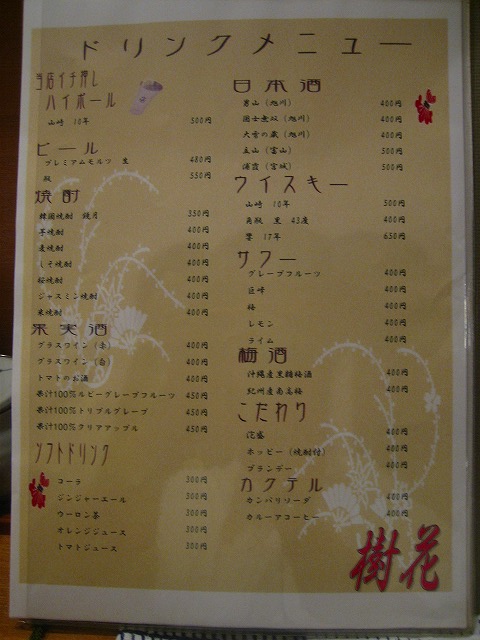 ドリンクメニュー
当店イチ押し
ハイボール
山崎 10年 500円
ビール
プレミアムモルツ 生 480円
瓶 550円
焼酎
韓国焼酎 鏡月 350円
芋焼酎 400円
麦焼酎 400円
しそ焼酎 400円
桜焼酎 400円
ジャスミン焼酎 400円
米焼酎 400円
果実酒
グラスワイン (赤) 400円
グラスワイン (白) 400円
トマトのお酒 400円
果汁100%ルビーグレープフルーツ 450円
果汁100%トリプルグレープ 450円
果汁100%クリアアップル 450円
ソフトドリンク
コーラ 300円
ジンジャーエール 300円
ウーロン茶 300円
オレンジジュース 300円
トマトジュース 300円
日本酒
男山 (旭川) 400円
国士無双 (旭川) 400円
大雪の蔵 (旭川) 400円
立山 (富山) 500円
浦霞 (宮城) 500円
ウイスキー
山崎 10年 500円
角瓶 黒 43度 400円
響 17年 650円
サワー
グレープフルーツ 400円
巨峰 400円
梅 400円
レモン 400円
ライム 400円
梅酒
沖縄産黒糖梅酒 400円
紀州産南高梅 400円
こだわり
泡盛 400円
ホッピー (焼酎付) 400円
ブランデー 400円
カクテル
カンパリソーダ 400円
カルーアコーヒー 400円
樹花